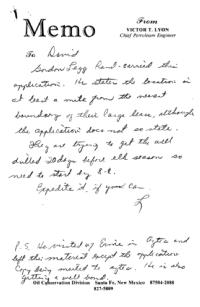 Memo
From
VICTOR T. LYON
Chief Petroleum Engineer
To David
Gordon Legg hand-carried this
application. He states the location is
at least a mile from the nearest
boundary of their large lease, although
the application does not so state.
They are trying to get the well
drilled 20 days before elk season so
need to start by 8-8.
Expedite it, if you can.
P.S. He visited w/ Ernie in Aztec and
left the material except the application
Copy being mailed to Aztec. He is also
getting a well bond.
Oil Conservation Division Santa Fe, New Mexico 87504-2088
827-5809